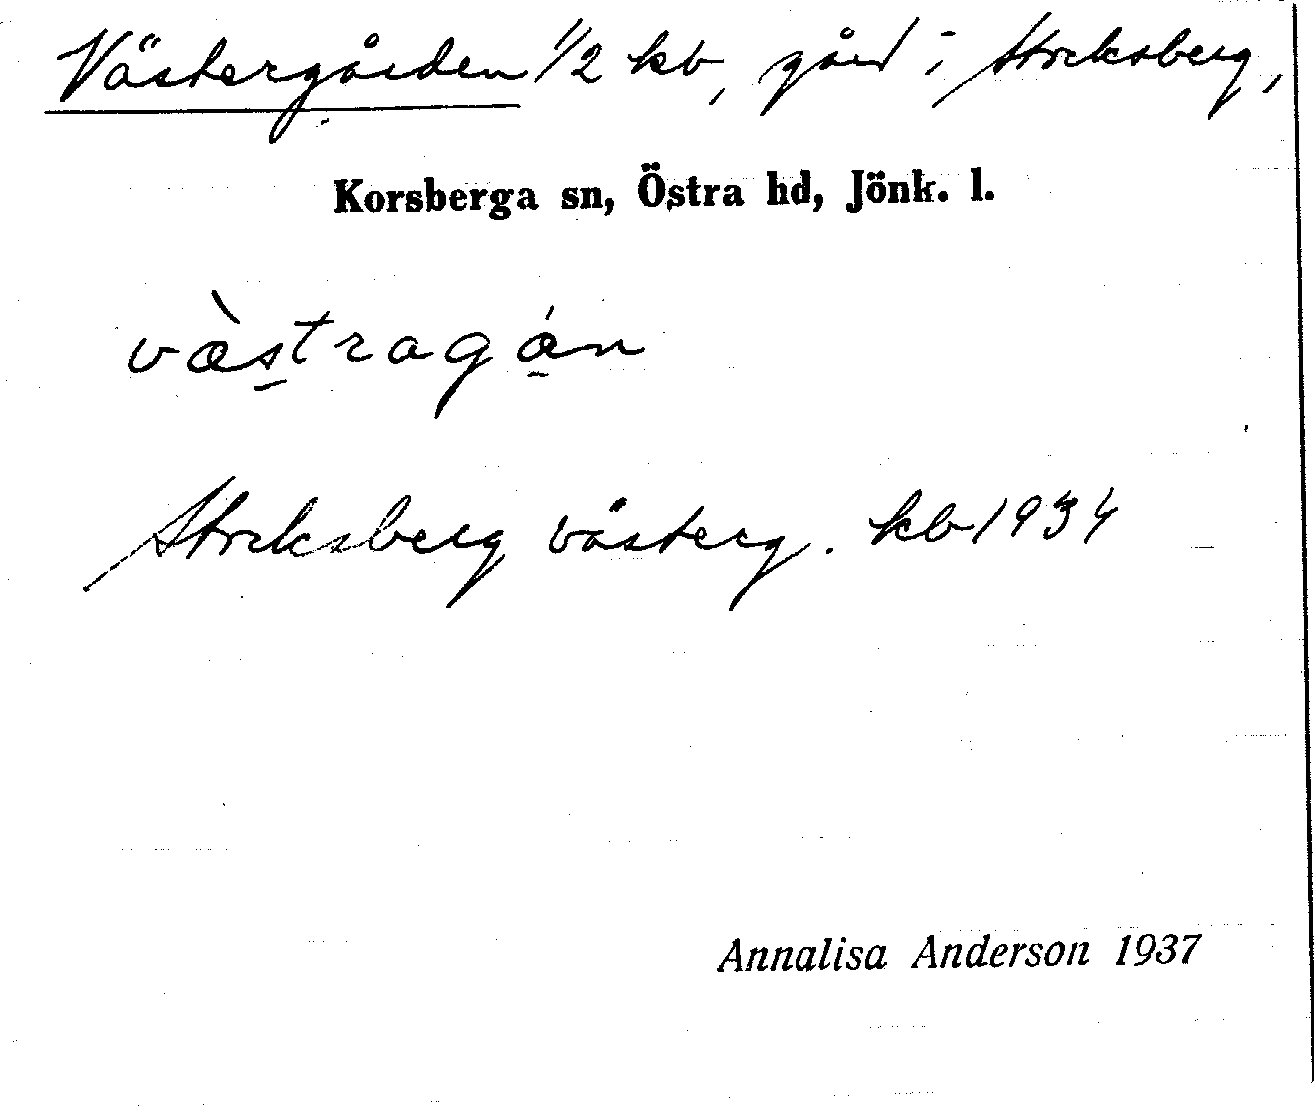 Västergården 1/2 kb, gård i Stocksberg,
Korsberga sn, Östra hd, Jönk. l.
væ̀stragán
Stocksberg västerg. kb 1934
Annalisa Anderson 1937